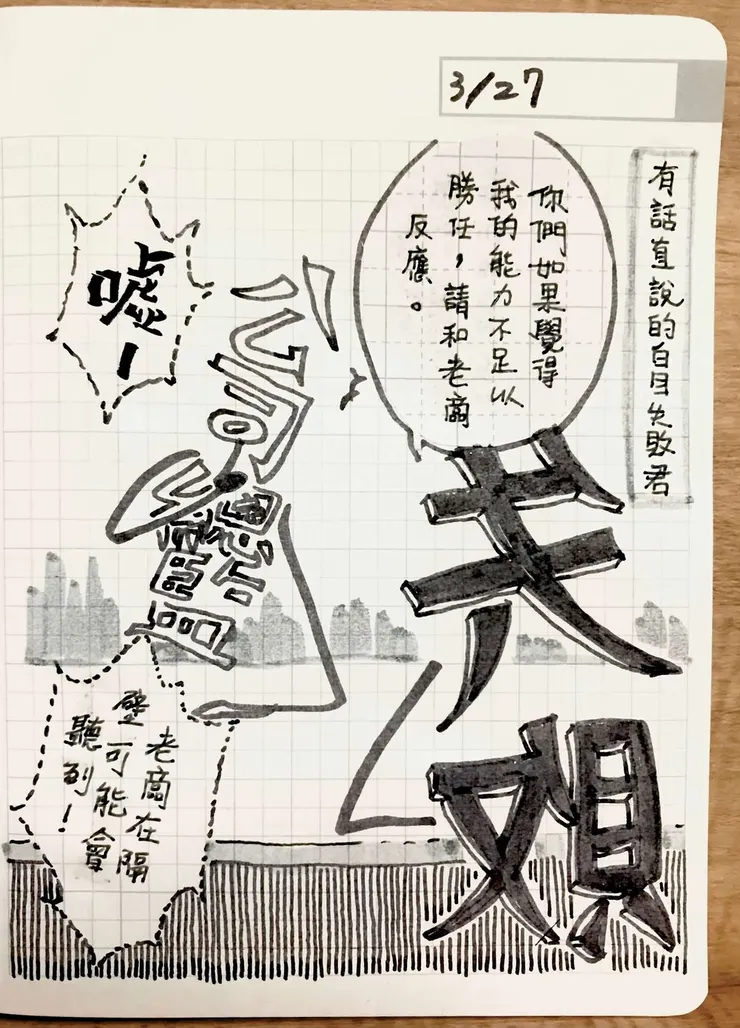 3/27
有話直說的白目失敗君
你們如果覺得
我的能力不足以
勝任，請和老商
反應。
失敗
公司
噓！
老商在隔
壁可能會
聽到！